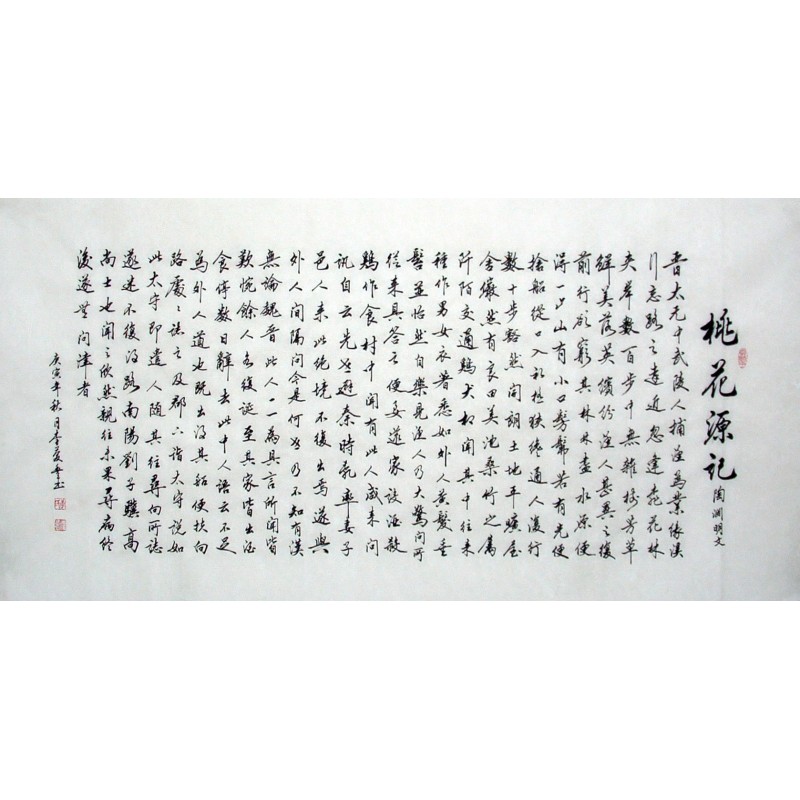 桃花源記
陶淵明文
晉太元中武陵人捕漁為業緣溪
行忘路之遠近忽逢桃花林
夾岸數百步中無雜樹芳草
鮮美落英繽紛漁人甚異之復
前行欲窮其林林盡水源便
得一山山有小口髣髴若有光便
捨船從口入初極狹纔通人復行
數十步豁然開朗土地平曠屋
舍儼然有良田美池桑竹之屬
阡陌交通鷄犬相聞其中往來
種作男女衣著悉如外人黃髮垂
髫並怡然自樂見漁人乃大驚問所
從來具答之便要還家設酒殺
鷄作食村中聞有此人咸來問
訊自云先世避秦時亂率妻子
邑人來此絕境不復出焉遂與
外人間隔問今是何世乃不知有漢
無論魏晉此人一一為具言所聞皆
歎惋餘人各復延至其家皆出酒
食停數日辭去此中人語云不足
為外人道也既出得其船便扶向
路處處誌之及郡下詣太守說如
此太守即遣人隨其往尋向所誌
遂迷不復得路南陽劉子驥高
尚士也聞之欣然親往未果尋病終
後遂無問津者
庚寅年秋月李